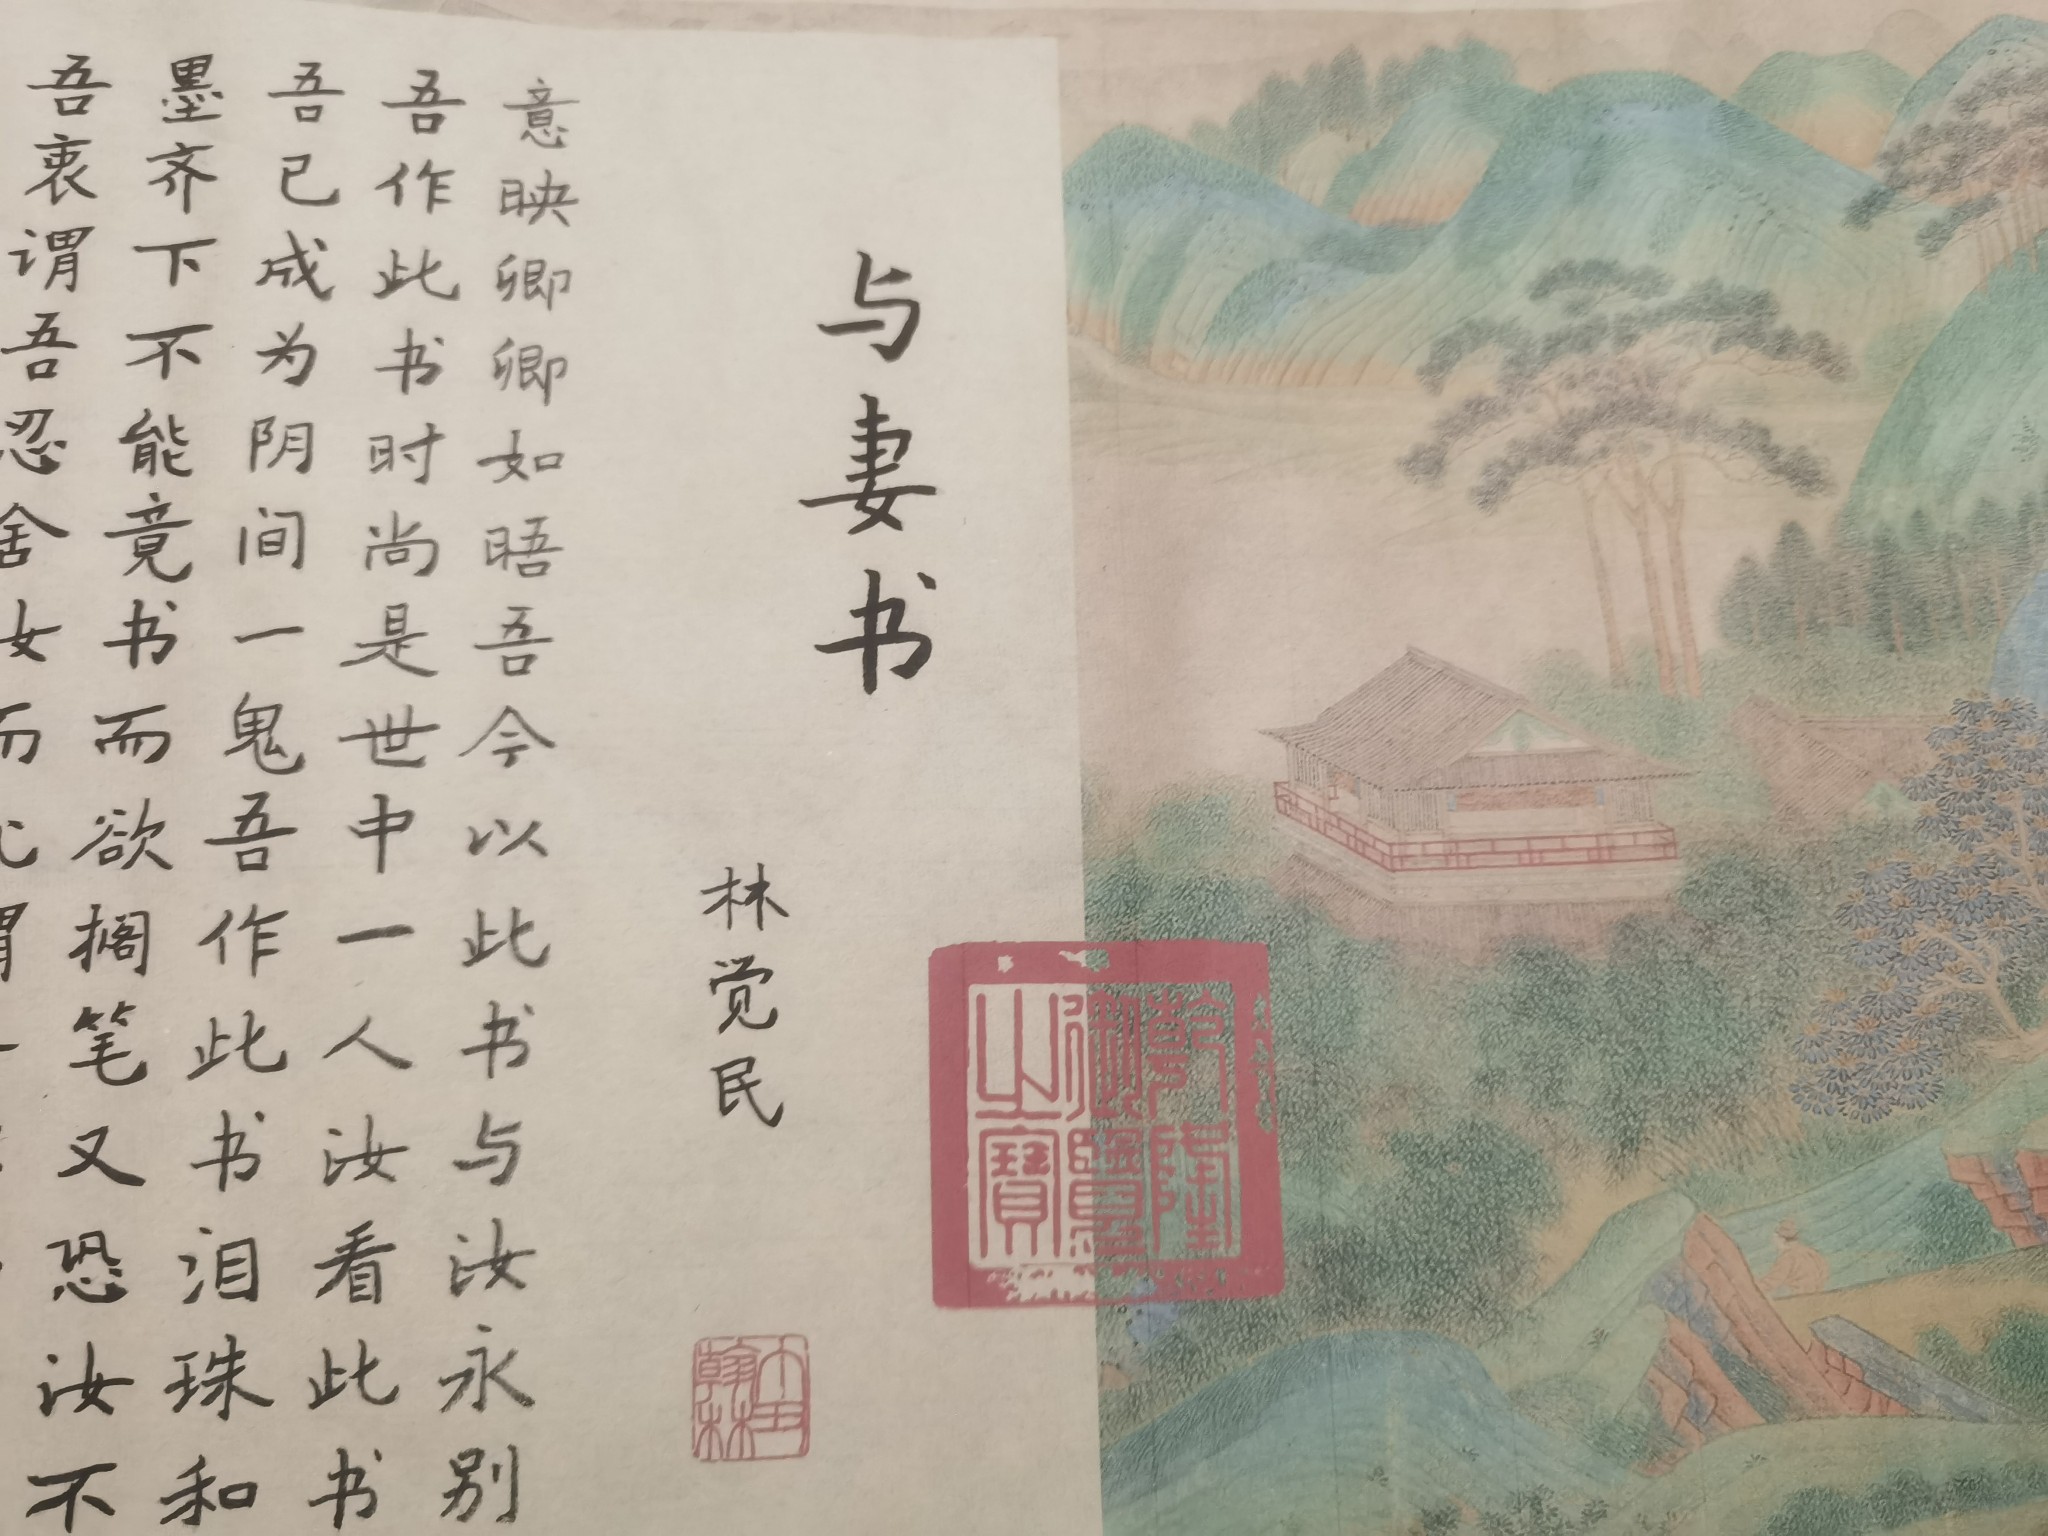 乾隆
御覽
之寶
与妻书
林觉民
翰林
意映卿卿如晤吾今以此书与汝永别
吾作此书时尚是世中一人汝看此书
吾已成为阴间一鬼吾作此书泪珠和
墨齐下不能竟书而欲搁笔又恐汝不
吾衷谓吾忍舍汝而死谓